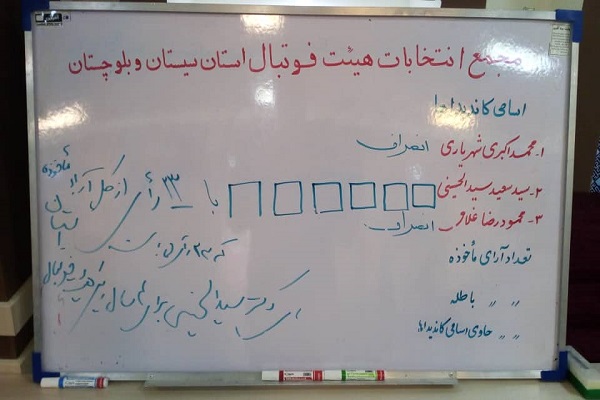 مجمع انتخابات هیئت فوتبال استان سیستان و بلوچستان
اسامی کاندیداها
۱- محمد اکبری شهریاری انصراف
۲- سید سعید سیدالحسینی با ۳۳ رأی از کل آراء مأخوذه
۳- محمودرضا غلامی انصراف
تعداد آرای مأخوذه
〃 〃 باطله
〃 〃 حاوی اسامی کاندیداها
که ۳۳ رأی
سیدالحسینی برای ۴ سال